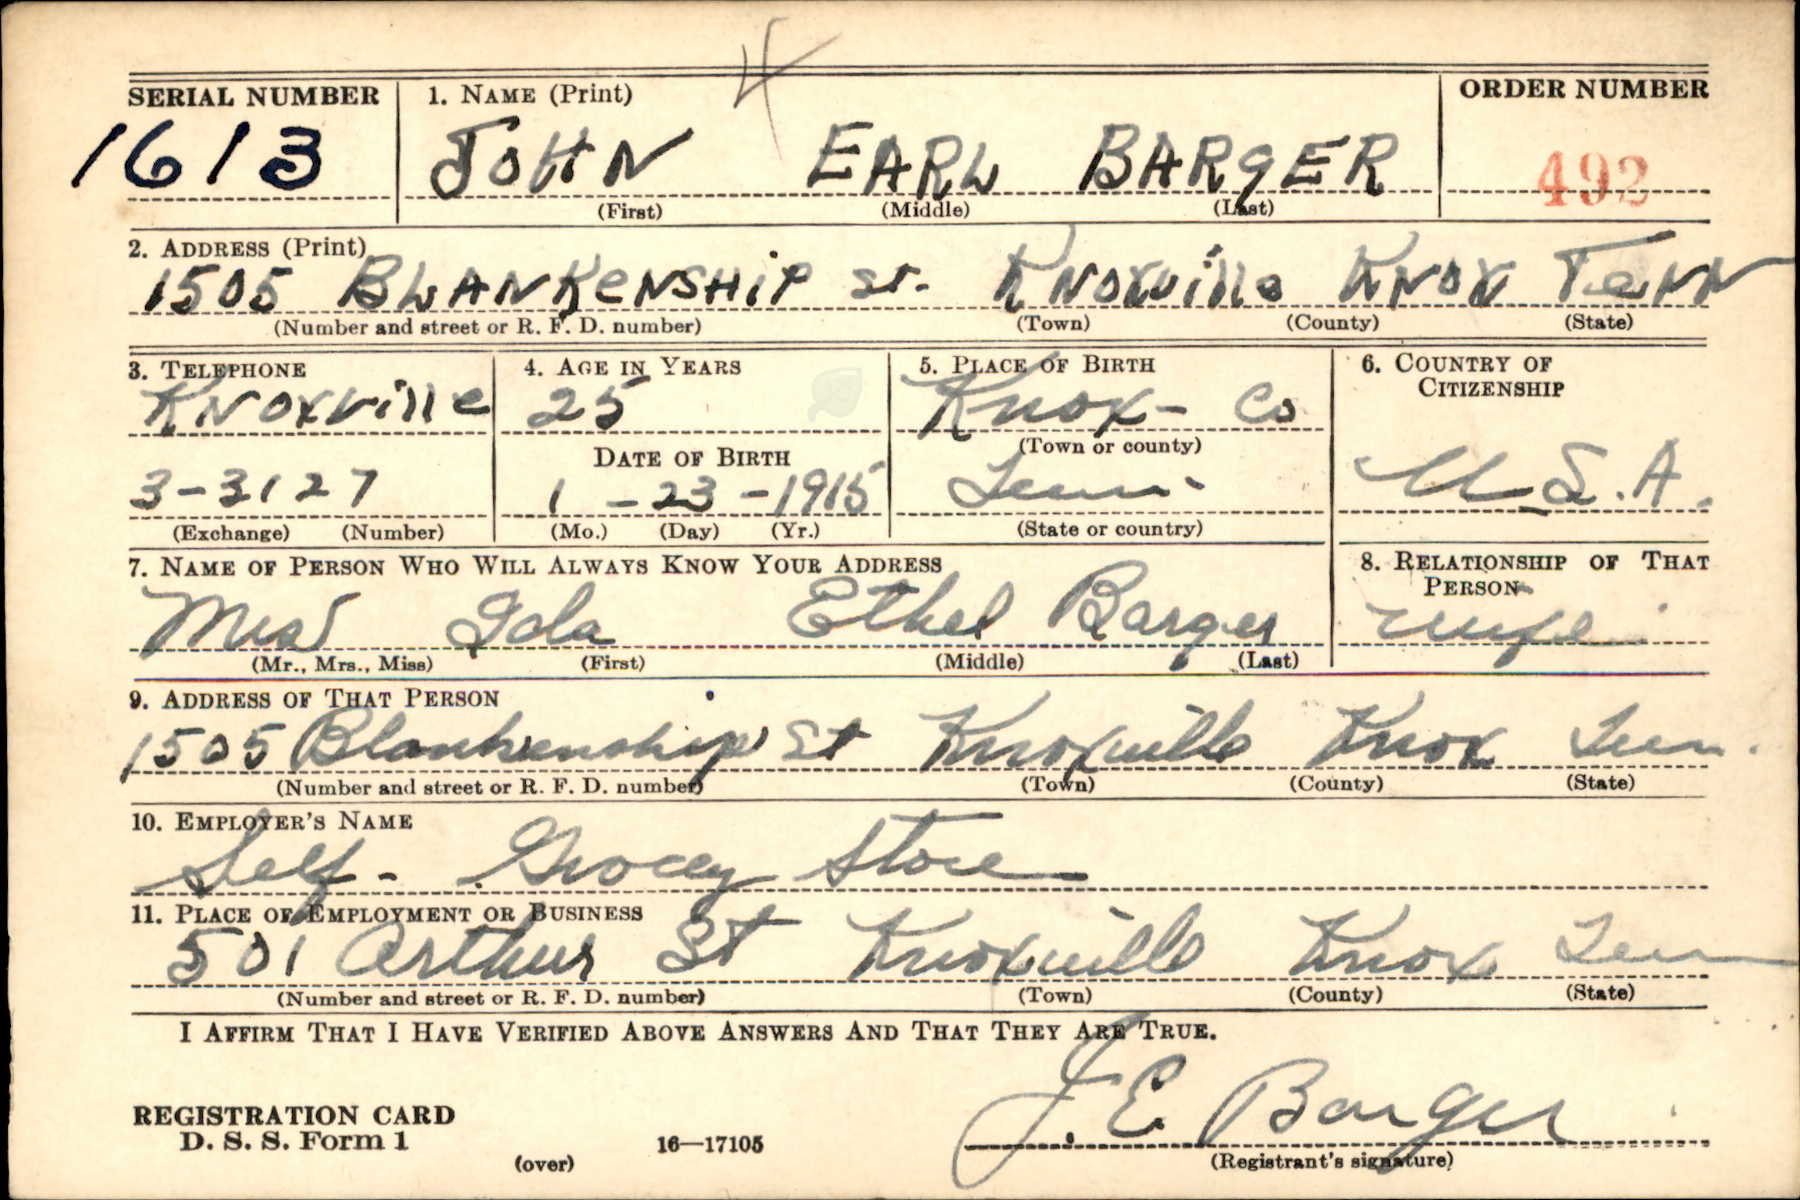 SERIAL NUMBER 1. NAME (Print) ORDER NUMBER
1613 JOHN EARL BARGER 492
(First) (Middle) (Last)
2. ADDRESS (Print)
1505 BLANKENSHIP ST. KNOXVILLE KNOX TENN
(Number and street or R. F. D. number) (Town) (County) (State)
3. TELEPHONE 4. AGE IN YEARS 5. PLACE OF BIRTH 6. COUNTRY OF CITIZENSHIP
KNOXVILLE 25 Knox - Co
DATE OF BIRTH (Town or county)
3-3127 1-23-1915 Tenn. U.S.A.
(Exchange) (Number) (Mo.) (Day) (Yr.) (State or country)
7. NAME OF PERSON WHO WILL ALWAYS KNOW YOUR ADDRESS 8. RELATIONSHIP OF THAT PERSON
Mrs Ida Ethel Barger wife
(Mr., Mrs., Miss) (First) (Middle) (Last)
9. ADDRESS OF THAT PERSON
1505 Blankenship St Knoxville Knox Tenn.
(Number and street or R. F. D. number) (Town) (County) (State)
10. EMPLOYER'S NAME
Self - Grocey Store
11. PLACE OF EMPLOYMENT OR BUSINESS
501 Arthur St Knoxville Knox Tenn
(Number and street or R. F. D. number) (Town) (County) (State)
I AFFIRM THAT I HAVE VERIFIED ABOVE ANSWERS AND THAT THEY ARE TRUE.
J. E. Barger
REGISTRATION CARD
D. S. S. Form 1 16—17105
(over) (Registrant's signature)